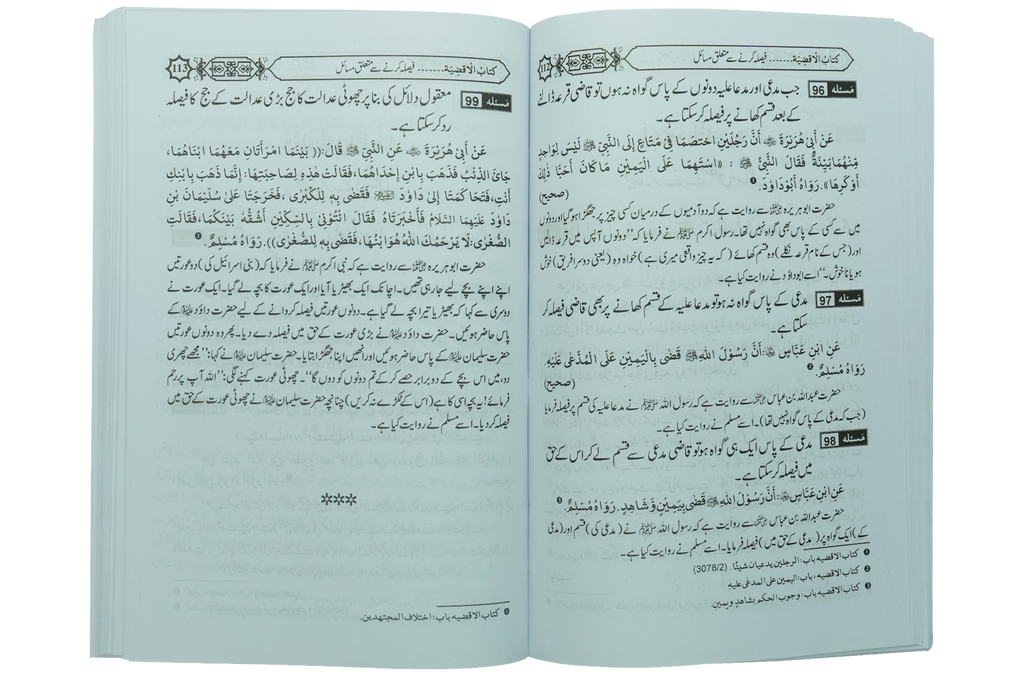 كتابُ الْاقضِيَة....... فیصلہ کرنے سے متعلق مسائل
112
مَسئلہ 96 جب مدعی اور مدعا علیہ دونوں کے پاس گواہ نہ ہوں تو قاضی قرعہ ڈالنے
کے بعد قسم کھانے پر فیصلہ کرسکتا ہے۔
عَنْ اَبِیْ هُرَيْرَةَ ؓ اَنَّ رَجُلَيْنِ اخْتَصَمَا فِیْ مَتَاعٍ اِلَی النَّبِیِّ ﷺ لَيْسَ لِوَاحِدٍ
مِّنْهُمَا بَيِّنَةٌ فَقَالَ النَّبِیُّ ﷺ : ((اسْتَهِمَا عَلَی الْيَمِيْنِ مَا كَانَ اَحَبَّا ذٰلِكَ
اَوْ كَرِهَا)). رَوَاهُ اَبُوْدَاوٗدَ. ❶ (صحیح)
حضرت ابو ہریرہ ؓ سے روایت ہے کہ دو آدمیوں کے درمیان کسی چیز پر جھگڑا ہو گیا اور دونوں
میں سے کسی کے پاس بھی گواہ نہیں تھا۔ رسول اکرم ﷺ نے فرمایا کہ ”دونوں آپس میں قرعہ ڈالیں
اور (جس کے نام قرعہ نکلے) وہ قسم کھائے (کہ یہ چیز واقعی میری ہے) خواہ وہ (یعنی دوسرا فریق) خوش
ہو یا ناخوش۔“ اسے ابوداؤد نے روایت کیا ہے۔
مَسئلہ 97 مدعی کے پاس گواہ نہ ہو تو مدعا علیہ کے قسم کھانے پر بھی قاضی فیصلہ کر
سکتا ہے۔
عَنِ ابْنِ عَبَّاسٍ ؓ :اَنَّ رَسُوْلَ اللهِ ﷺ قَضٰی بِالْيَمِيْنِ عَلَی الْمُدَّعٰی عَلَيْهِ.
رَوَاهُ مُسْلِمٌ. ❷ (صحیح)
حضرت عبداللہ بن عباس ؓ سے روایت ہے کہ رسول اللہ ﷺ نے مدعا علیہ کی قسم پر فیصلہ فرمایا
(جب کہ مدعی کے پاس گواہ نہیں تھا)۔ اسے مسلم نے روایت کیا ہے۔
مَسئلہ 98 مدعی کے پاس ایک ہی گواہ ہو تو قاضی مدعی سے قسم لے کر اس کے حق
میں فیصلہ کرسکتا ہے۔
عَنِ ابْنِ عَبَّاسٍ ؓ :اَنَّ رَسُوْلَ اللهِ ﷺ قَضٰی بِيَمِيْنٍ وَّ شَاهِدٍ. رَوَاهُ مُسْلِمٌ. ❸
حضرت عبداللہ بن عباس ؓ سے روایت ہے کہ رسول اللہ ﷺ نے (مدعی کی) قسم اور (مدعی
کے) ایک گواہ پر (مدعی کے حق میں) فیصلہ فرمایا۔ اسے مسلم نے روایت کیا ہے۔
❶ كتاب الاقضيه باب: الرجلين يدعيان شيئا. (3078/2)
❷ كتاب الاقضيه ، باب: اليمين على المدعى عليه
❸ كتاب الاقضيه باب: وجوب الحكم بشاهد ويمين
كتابُ الْاقضِيَة....... فیصلہ کرنے سے متعلق مسائل
113
مَسئلہ 99 معقول دلائل کی بنا پر چھوٹی عدالت کا جج بڑی عدالت کے جج کا فیصلہ
رد کرسکتا ہے۔
عَنْ اَبِیْ هُرَيْرَةَ ؓ عَنِ النَّبِیِّ ﷺ قَالَ:(( بَيْنَمَا امْرَأَتَانِ مَعَهُمَا ابْنَاهُمَا،
جَائَ الذِّئْبُ فَذَهَبَ بِاِبْنِ اِحْدَاهُمَا، فَقَالَتْ هٰذِهِ لِصَاحِبَتِهَا: اِنَّمَا ذَهَبَ بِابْنِكِ
اَنْتِ، فَتَحَاكَمَتَا اِلٰی دَاوٗدَ ؑ فَقَضٰی بِهٖ لِلْكُبْرٰی ، فَخَرَجَتَا عَلٰی سُلَيْمَانَ بْنِ
دَاوٗدَ عَلَيْهِمَا السَّلَامُ فَاَخْبَرَتَاهُ فَقَالَ ائْتُوْنِیْ بِالسِّكِّيْنِ اَشُقُّهٗ بَيْنَكُمَا، فَقَالَتِ
الصُّغْرٰی: لَا يَرْحَمُكَ اللهُ هُوَ ابْنُهَا، فَقَضٰی بِهٖ لِلصُّغْرٰی)). رَوَاهُ مُسْلِمٌ. ❶
حضرت ابو ہریرہ ؓ سے روایت ہے کہ نبی اکرم ﷺ نے فرمایا کہ (بنی اسرائیل کی) دو عورتیں
اپنے اپنے بچے لیے جا رہی تھیں۔ اچانک ایک بھیڑیا آیا اور ایک عورت کا بچہ لے گیا۔ ایک عورت نے
دوسری سے کہا کہ بھیڑیا تیرا بچہ لے گیا ہے۔ دونوں عورتیں فیصلہ کروانے کے لیے حضرت داؤد ؑ کے
پاس حاضر ہوئیں۔ حضرت داؤد ؑ نے بڑی عورت کے حق میں فیصلہ دے دیا۔ پھر وہ دونوں عورتیں
حضرت سلیمان ؑ کے پاس حاضر ہوئیں اور انھیں اپنا جھگڑا بتایا۔ حضرت سلیمان ؑ نے کہا: ”مجھے چھری
دو، میں اس بچے کے دو برابر حصے کر کے تم دونوں کو دوں گا“۔ چھوٹی عورت کہنے لگی: ”اللہ آپ پر رحم
فرمائے! یہ بچہ اسی کا ہے (اس کے ٹکڑے نہ کریں) چنانچہ حضرت سلیمان ؑ نے چھوٹی عورت کے حق میں
فیصلہ کر دیا۔ اسے مسلم نے روایت کیا ہے۔
***
❶ كتاب الاقضيه باب: اختلاف المجتهدين.